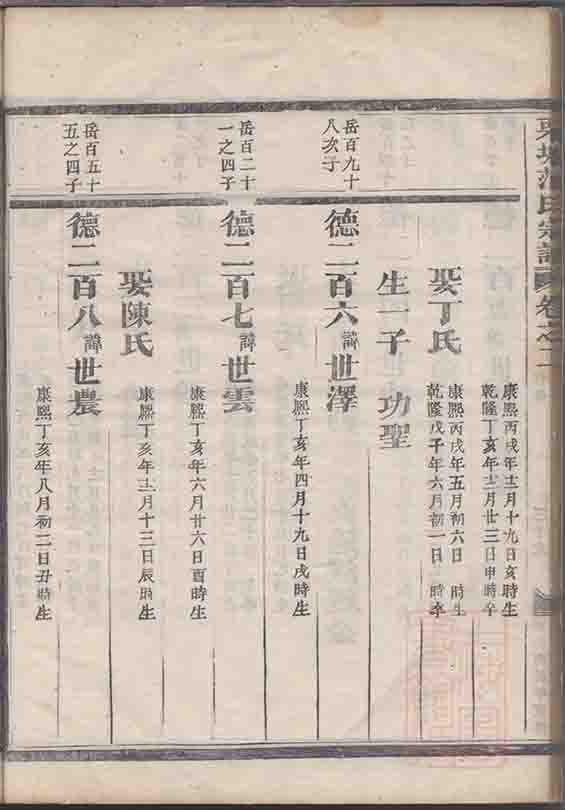 氏宗譜 卷之二
康熙丙戌年十二月十九日亥時生
乾隆丁亥年十二月廿三日申時卒
娶丁氏
康熙丙戌年五月初六日 時生
乾隆戊子年六月初一日 時卒
生一子 功聖
岳百九十
八次子
德二百六 諱世澤
康熙丁亥年四月十九日戌時生
岳百二十
一之四子
德二百七 諱世雲
康熙丁亥年六月廿六日酉時生
娶陳氏
康熙丁亥年十二月十三日辰時生
岳百五十
五之四子
德二百八 諱世農
康熙丁亥年八月初二日丑時生